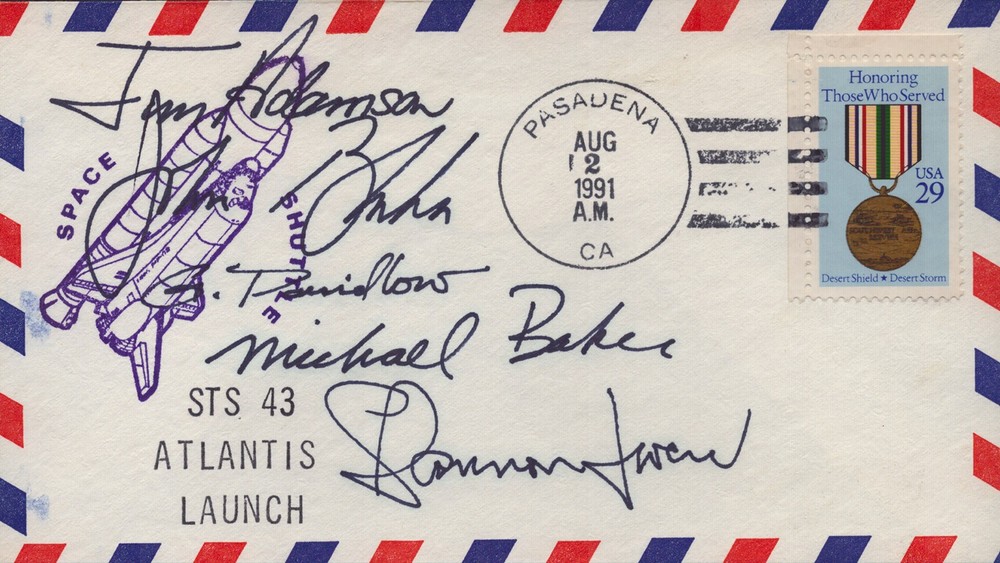 Jim Adamson
John Blaha
G. David Low
Michael Baker
Shannon Lucid
SPACE
SHUTTLE
STS 43
ATLANTIS
LAUNCH
PASADENA
AUG
2
1991
A.M.
CA
Honoring
Those Who Served
USA
29
Desert Shield ★ Desert Storm